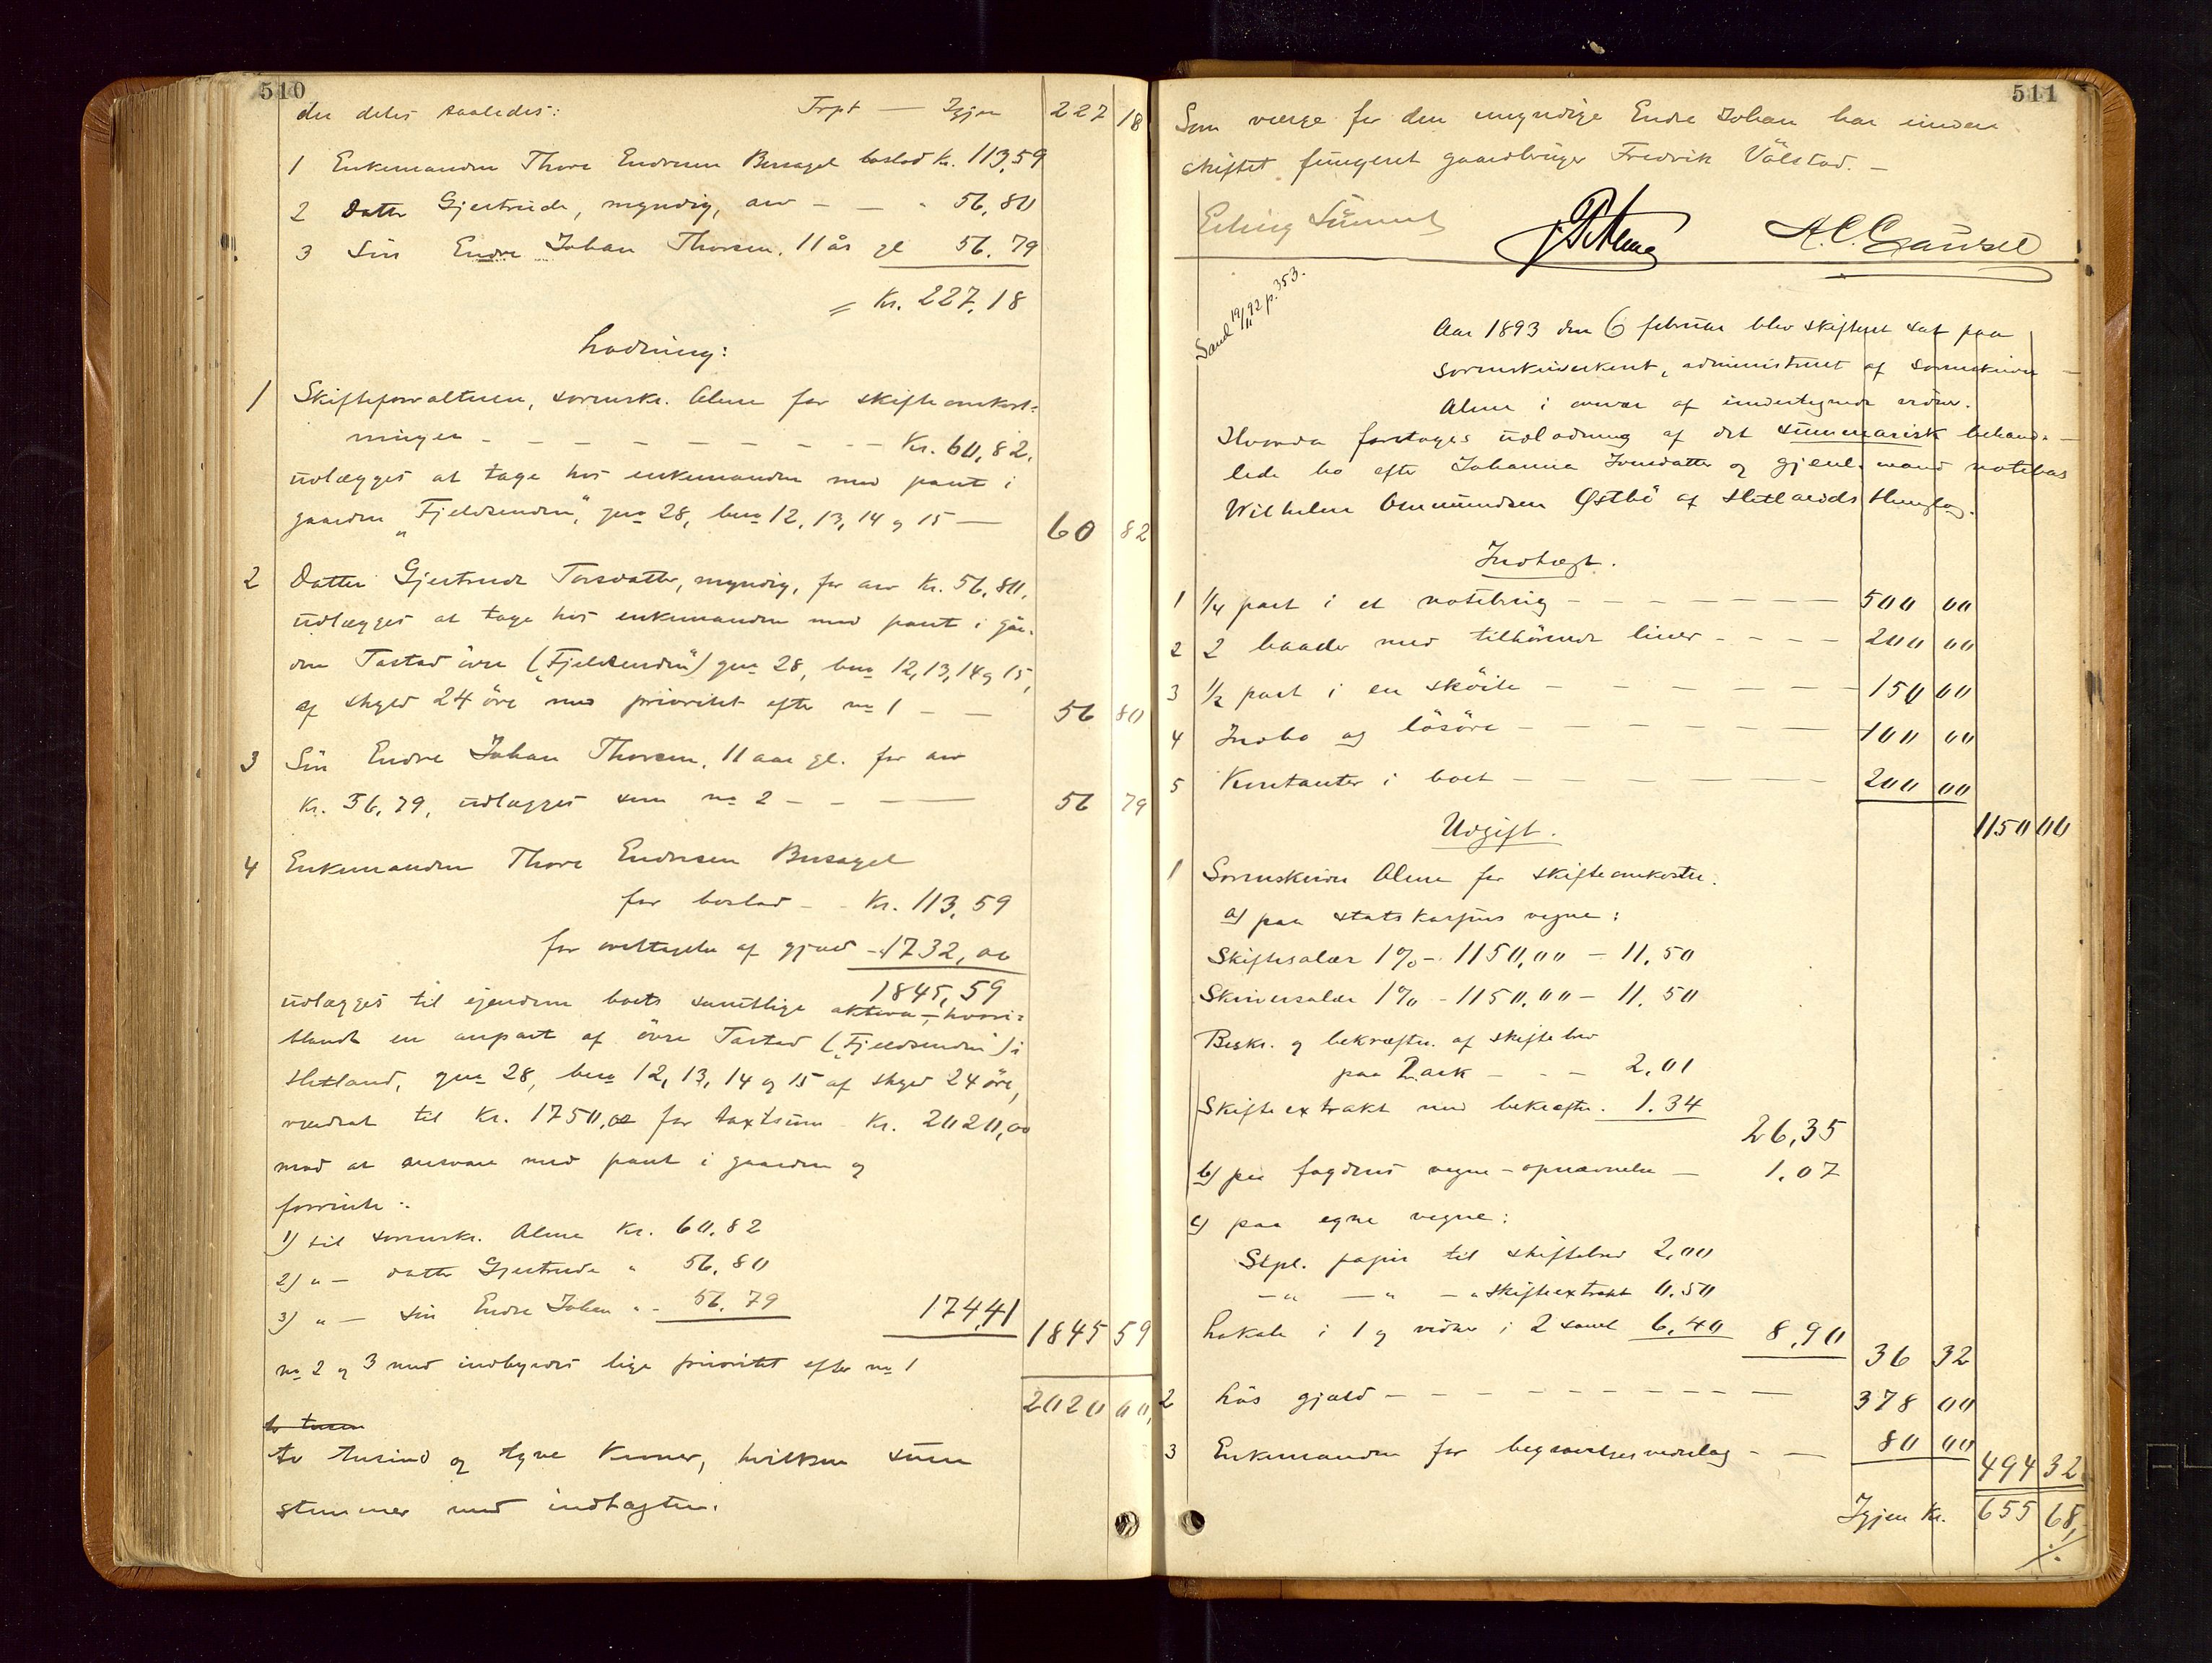 510
der deles saaledes: Trpt — Igjen 227 18
1 Enkemanden Thore Endresen Bersagel boslod Kr. 113,59
2 Datter Gjertrude, myndig, arv - — " 56,80
3 Søn Endre Johan Thorsen, 11 år gl 56.79
= Kr. 227,18
Lodning:
1 Skifteforvalteren, sorenskr. Alme for skifteomkost-
ninger - - - - - - - - - Kr. 60,82.
udlægges at tage hos enkemanden med pant i
gaarden "Fjeldsenden", gno 28, bno 12, 13, 14 og 15 — 60 82
2 Datter Gjertrude Torsdatter, myndig, for arv Kr. 56,80,
udlægges at tage hos enkemanden med pant i går-
den Tastad övre ("Fjeldsenden") gno 28, bno 12, 13, 14 og 15,
af skyld 24 öre med prioritet efter no 1 - — 56 80
3 Sön Endre Johan Thorsen, 11 aar gl. for arv
Kr. 56,79, udlægges som no 2 - - — — 56 79
4 Enkemanden Thore Endresen Bersagel
for boslod - - Kr. 113,59
for overtagelse af gjæld - 1732,00
1845,59
udlægges til ejendom boets samtlige aktiva - hvori-
blandt en anpart af övre Tastad ("Fjeldsenden") i
Hetland, gno 28, bno 12, 13, 14 og 15 af skyld 24 öre,
vurderet til Kr. 1750,00 for taxtsum Kr. 2020,00
mod at ansvare med pant i gaarden og
forrente:
1) til sorenskr. Alme Kr. 60,82
2) " — datter Gjertrude " 56,80
3) " — sön Endre Johan " - 56.79 174,41 1845 59
no 2 og 3 med indbyrdes lige prioritet efter no 1
2020 00,
to tusen
to tusind og tyve Kroner, hvilken sum
stemmer med indtægten.
511
Som værge for den umyndige Endre Johan har under
skiftet fungeret gaardbruger Fredrik Vålstad. —
A. C. Gausel
Sand 19/11 92 p. 353.
Aar 1893 den 6 februar blev skifteret sat paa
sorenskriverkont, administreret af sorenskriver —
Alme i overvær af undertegnede vidner.
Hvorda foretages udlodning af det summarisk behand-
lede bo efter Johanna Jonsdatter og gjenl. mand notebas
Wilhelm Ommundsen Østbö af Hetlands thinglag.
Indtægt.
1 1/4 part i et notebrug - - - - - - - 500 00
2 2 baader med tilhörende liner - - - - 200 00
3 1/2 part i en sköite - - - - - - - 150 00
4 Indbo og lösöre - - - - - - - 100 00
5 Kontanter i boet - - - - - - - 200 00
1150 00
Udgift.
1 Sorenskriver Alme for skifteomkostn.
a) paa statskassens vegne:
Skiftesalær 1% - 1150,00 - 11,50
Skriversalær 1% - 1150,00 - 11,50
Beskr. og bekræftn. af skiftebrev
paa 2 ark - - - 2,01
Skifteextrakt med bekræftn. 1.34
26,35
b) paa fogdens vegne - opnævnelse — 1,07
c) paa egne vegne:
Stpl. papir til skiftebrev 2,00
- " — " — " skifteextrakt 0,50
Lokale i 1 og vidner i 2 saml 6,40 8,90 36 32
2 Lös gjæld - - - - - - - - - — 378 00
3 Enkemanden for begravelsesvederlag - — 80 00
494 32
Igjen Kr. 655 68,